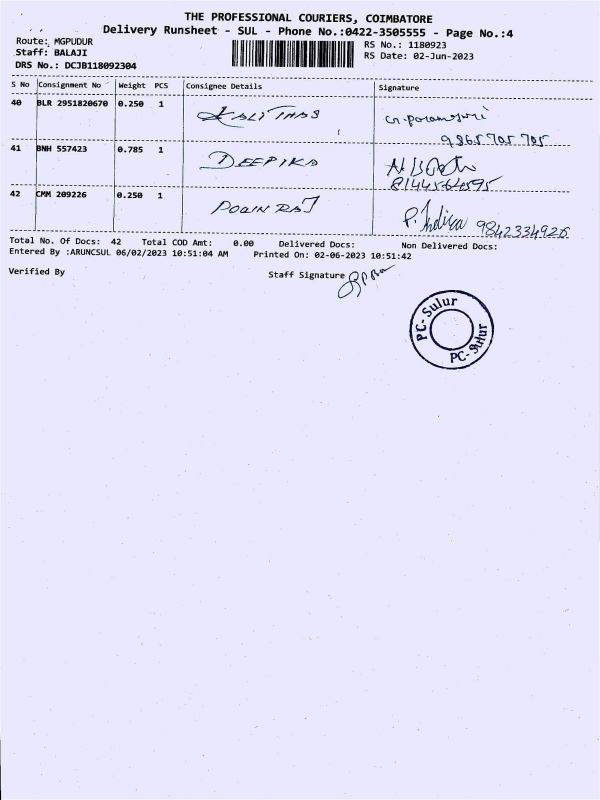 THE PROFESSIONAL COURIERS, COIMBATORE
Delivery Runsheet - SUL - Phone No.:0422-3505555 - Page No.:4
Route: MGPUDUR
RS No.: 1180923
Staff: BALAJI
RS Date: 02-Jun-2023
DRS No.: DCJB118092304
S No Consignment No Weight PCS Consignee Details Signature
40 BLR 2951820670 0.250 1 KALITHAS
9865 705 705
41 BNH 557423 0.785 1 DEEPIKA
8144564595
42 CMM 209226 0.250 1 P. Indira 9842334926
Total No. Of Docs: 42 Total COD Amt: 0.00 Delivered Docs: Non Delivered Docs:
Entered By :ARUNCSUL 06/02/2023 10:51:04 AM Printed On: 02-06-2023 10:51:42
Verified By Staff Signature
PC-Sulur
PC-Sulur